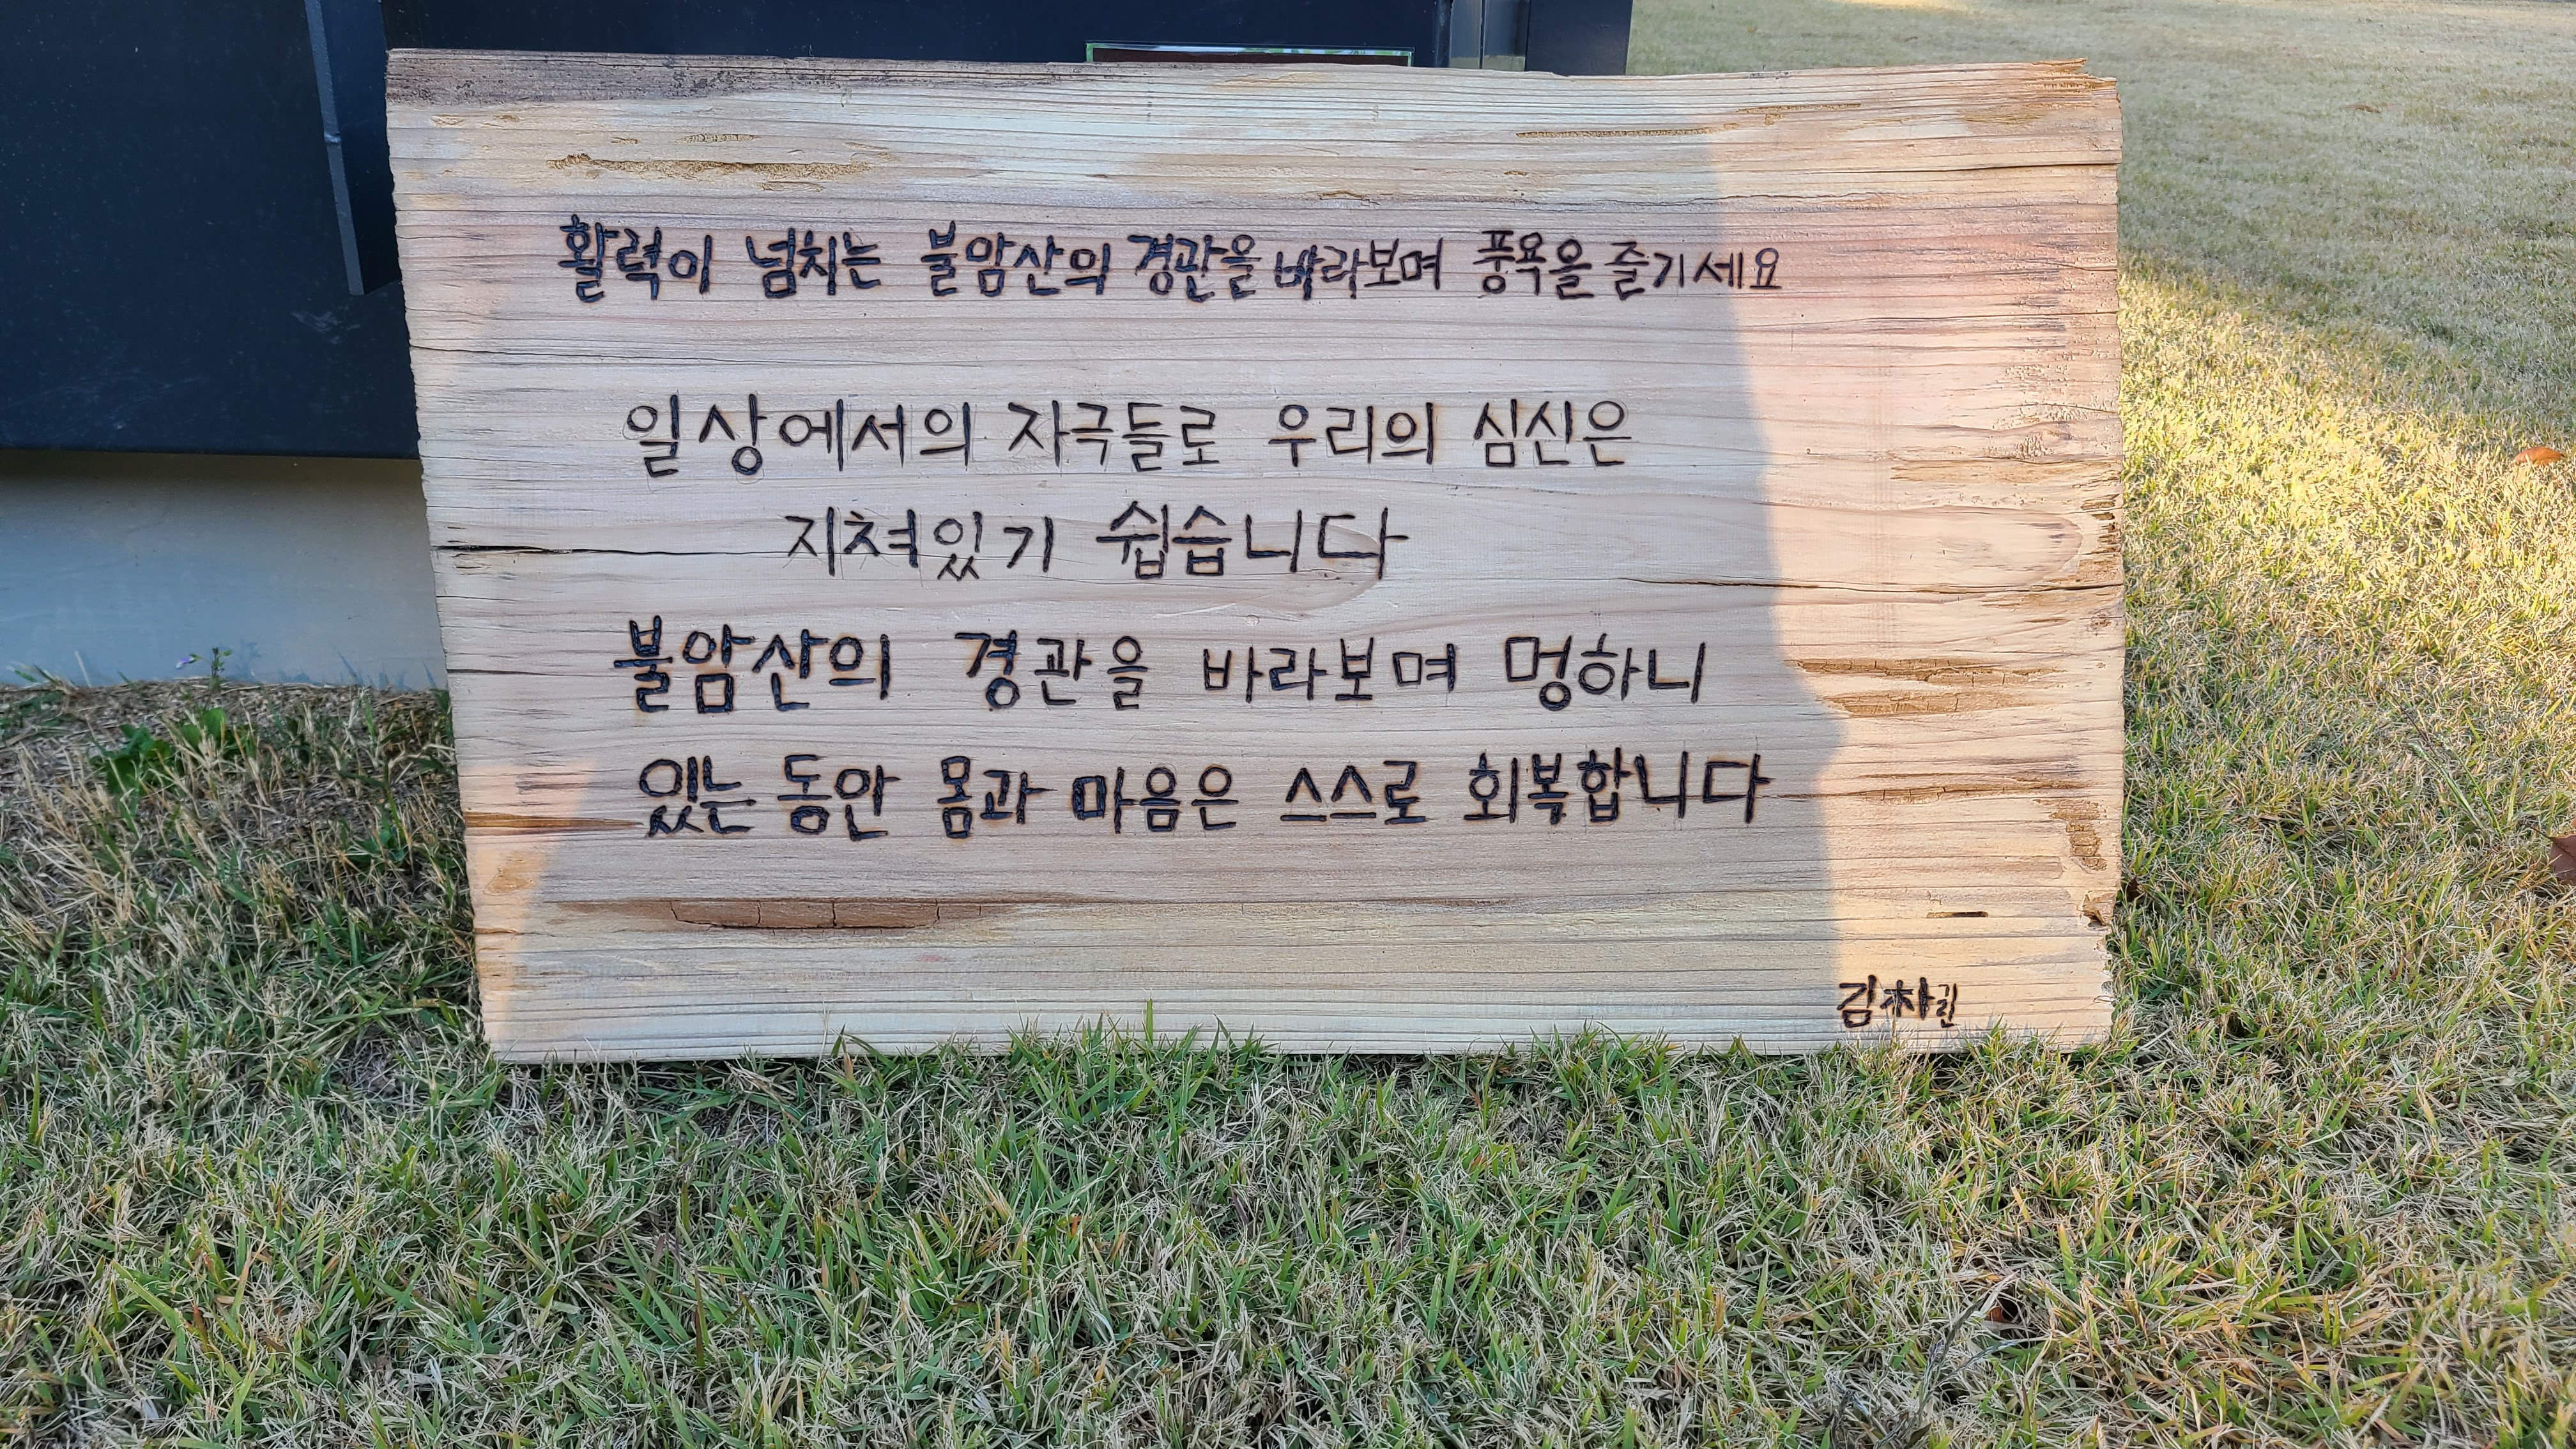 활력이 넘치는 불암산의 경관을 바라보며 풍욕을 즐기세요
일상에서의 자극들로 우리의 심신은
지쳐있기 쉽습니다
불암산의 경관을 바라보며 멍하니
있는 동안 몸과 마음은 스스로 회복합니다